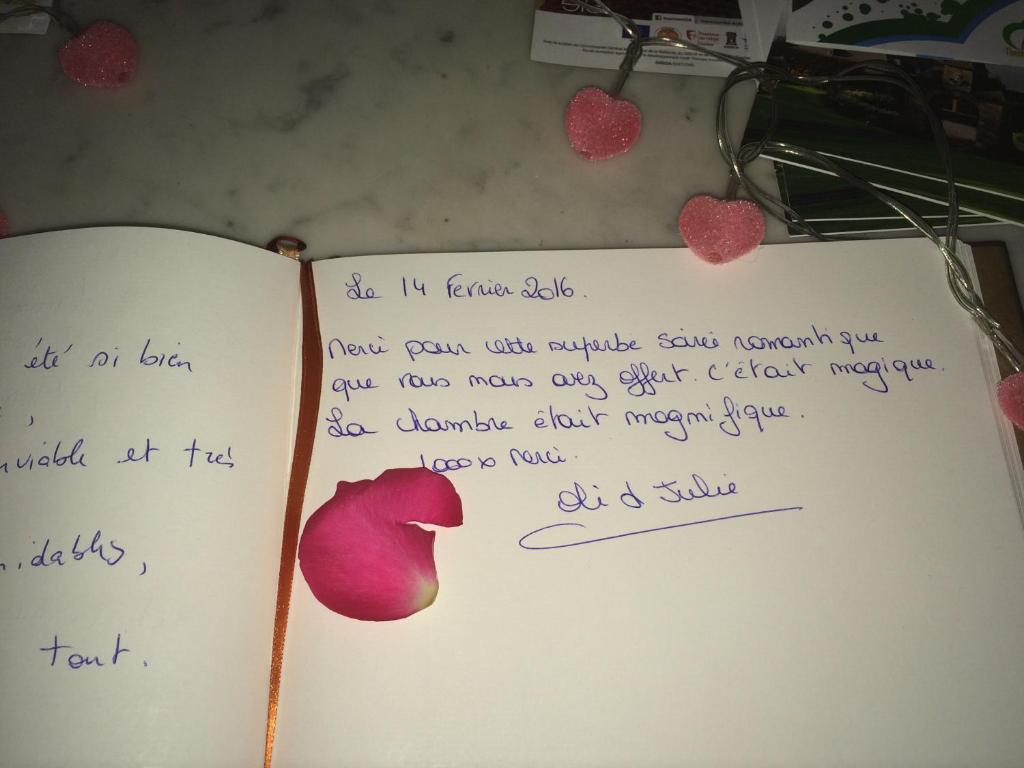 été si bien
,
et très
tout.
Le 14 Fevrier 2016.
Merci pour cette superbe soirée romantique
que vous nous avez offert. C'était magique.
La chambre était magnifique.
1000 x Merci.
Oli & Julie